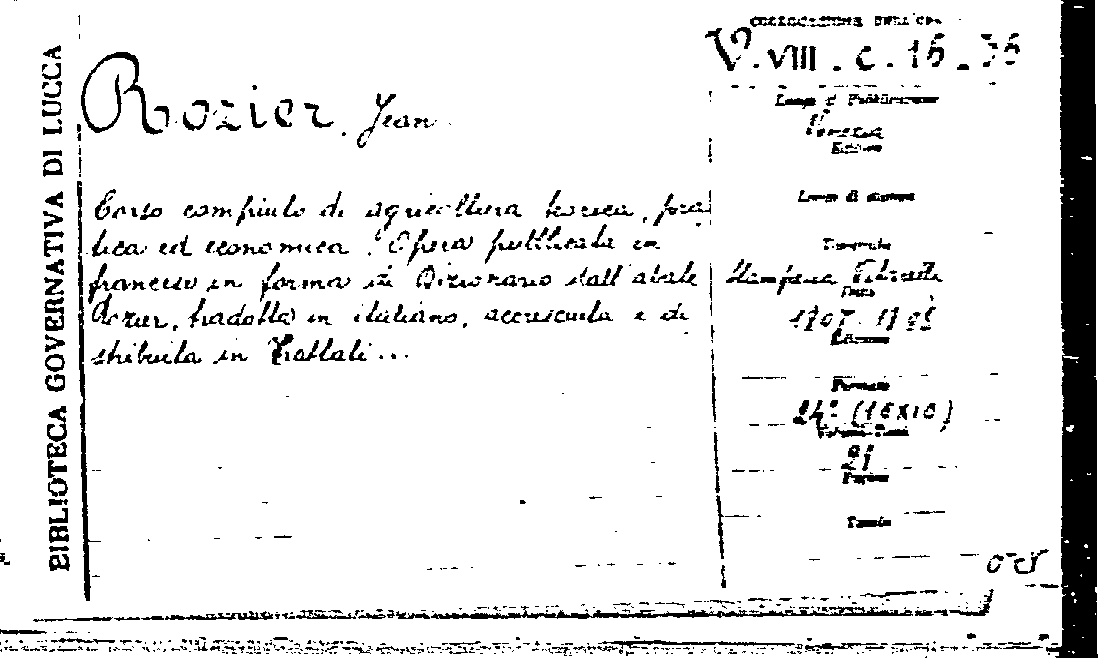 BIBLIOTECA GOVERNATIVA DI LUCCA
Rozier, Jean
Corso compiuto di agricoltura teorica, pra
tica ed economica. Opera pubblicata in
francese in forma di Dizionario dall'abate
Rozier, tradotta in italiano, accresciuta e di
stribuita in Trattati...
COLLOCAZIONE DELL'OPERA
V. VIII. C. 16 -
Luogo di Pubblicazione
Venezia
Editore
Luogo di stampa
Tipografia
Stamperia
Data
Edizione
Formato
24° (16X10)
Volumi-Tomi
21
Pagine
Tavole